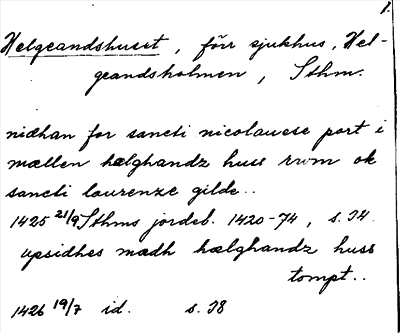 1.
Helgeandshuset, förr sjukhus, Hel-
geandsholmen, Sthm.
nidhan for sancti nicolauese port i
mællen hælghandz huss rwm ok
sancti laurenze gilde..
1425 21/9 Sthms jordeb. 1420-74, s. 74.
upsidhes mædh hælghandz huss
tompt..
1426 19/7 id. s. 78